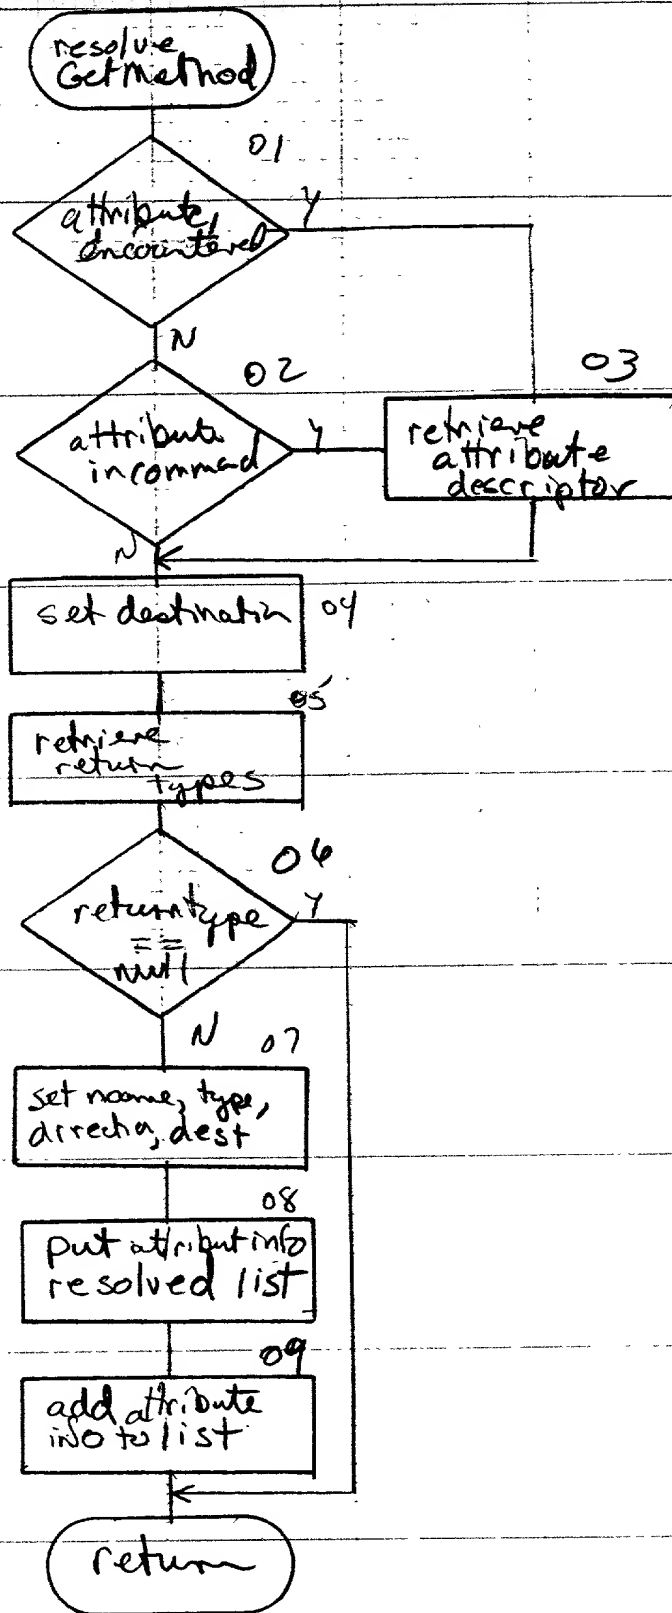 resolve
GetMethod
01
attribute,
encountered
Y
N
02
03
attribute
incommad
Y
retrieve
attribute
descriptor
N
set destinatin
04
05
retrieve
return
types
06
returntype
==
null
Y
N
07
set name, type,
directio, dest
08
put attribut info
resolved list
09
add attribute
info to list
return